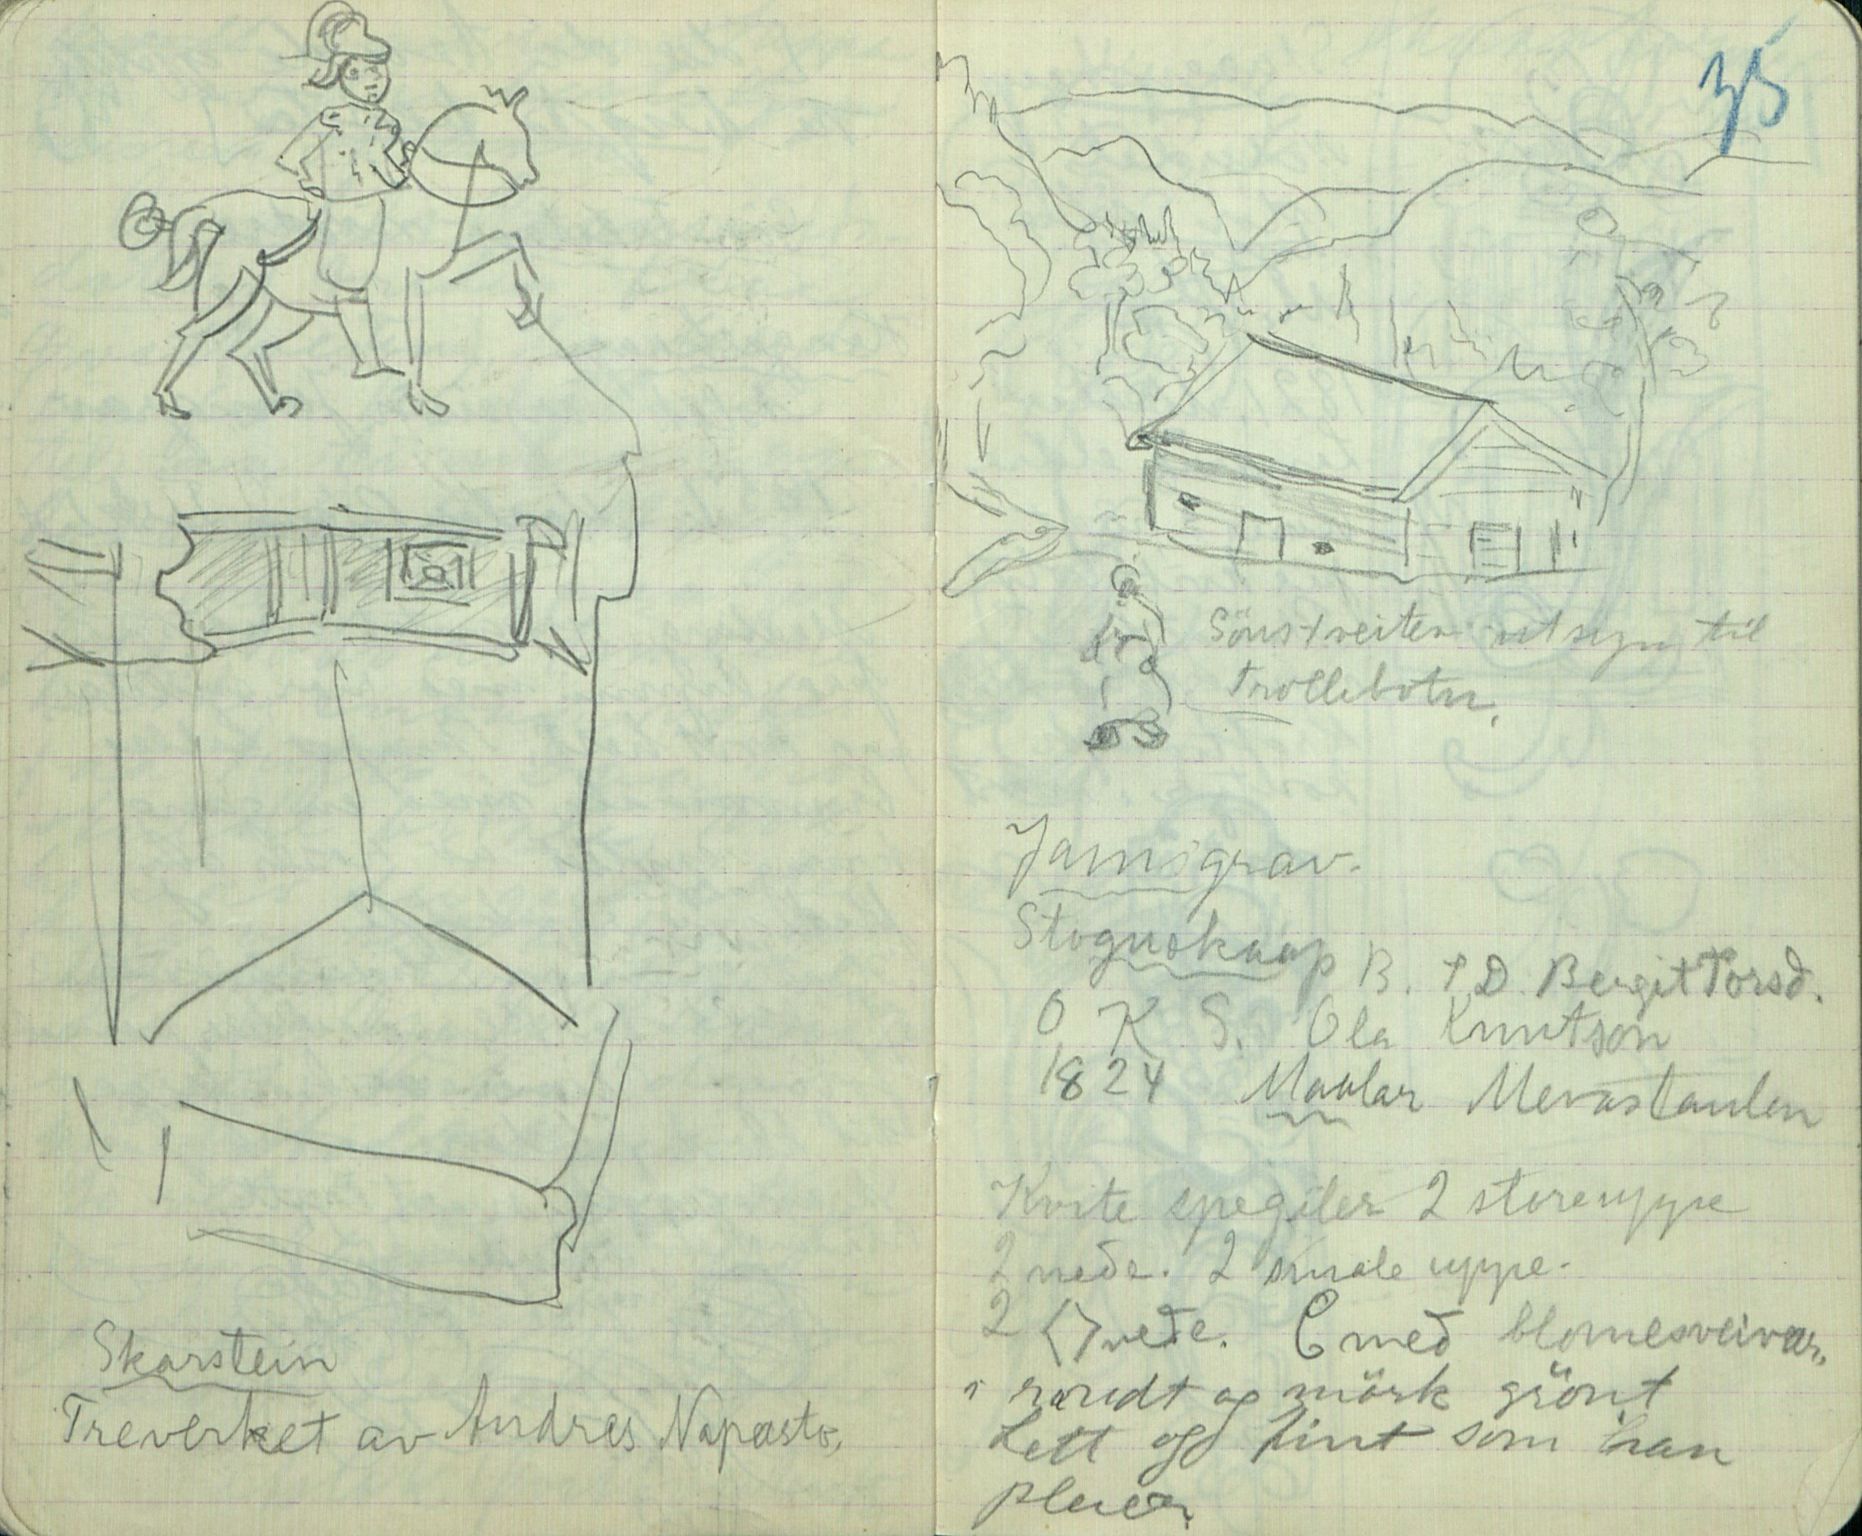 Skarstein
Treverket av Andres Napasto,
35
Sönstveiten utsyn til
Trollebotn.
Jamsgrav.
Stoguskaap B. T D Bergit Torsd.
O K S. Ola Knutson
1824 Maalar Mevastaulen
Kvite spegiler 2 store uppe
2 neđe. 2 smale uppe.
2 <> neđe. međ blomesveivar,
i raudt og mörk grönt
Lett og fint som han
pleier